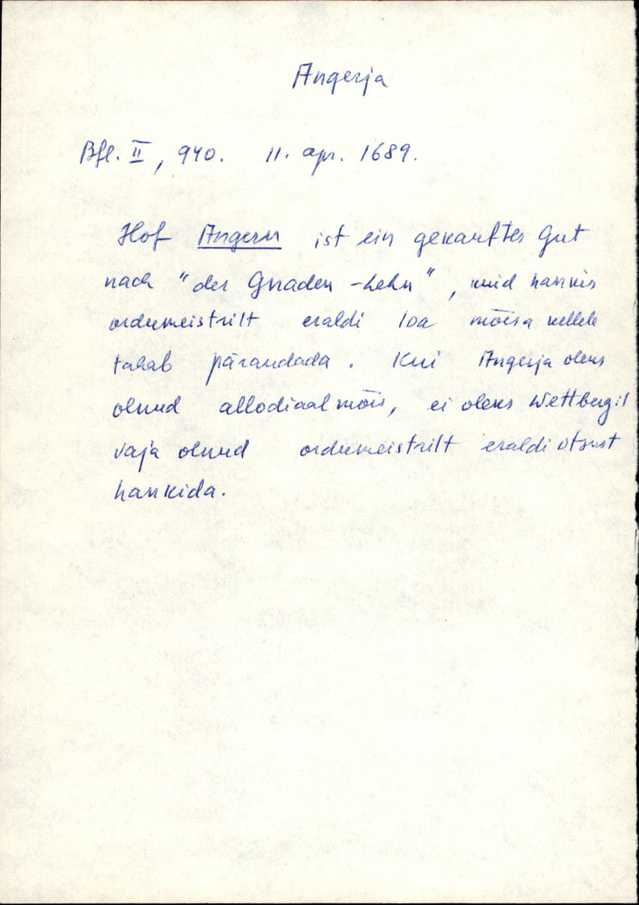 Angerja
Bfl. II, 940. 11. apr. 1689.
Hof Angern ist ein gekauftes Gut
nach "der Gnaden-Lehn", kuid hankis
ordumeistrilt eraldi loa mõisa kellele
tahab pärandada. Kui Angerja oleks
olnud allodiaalmõis, ei oleks Wettbergil
vaja olnud ordumeistrilt eraldi otsust
hankida.